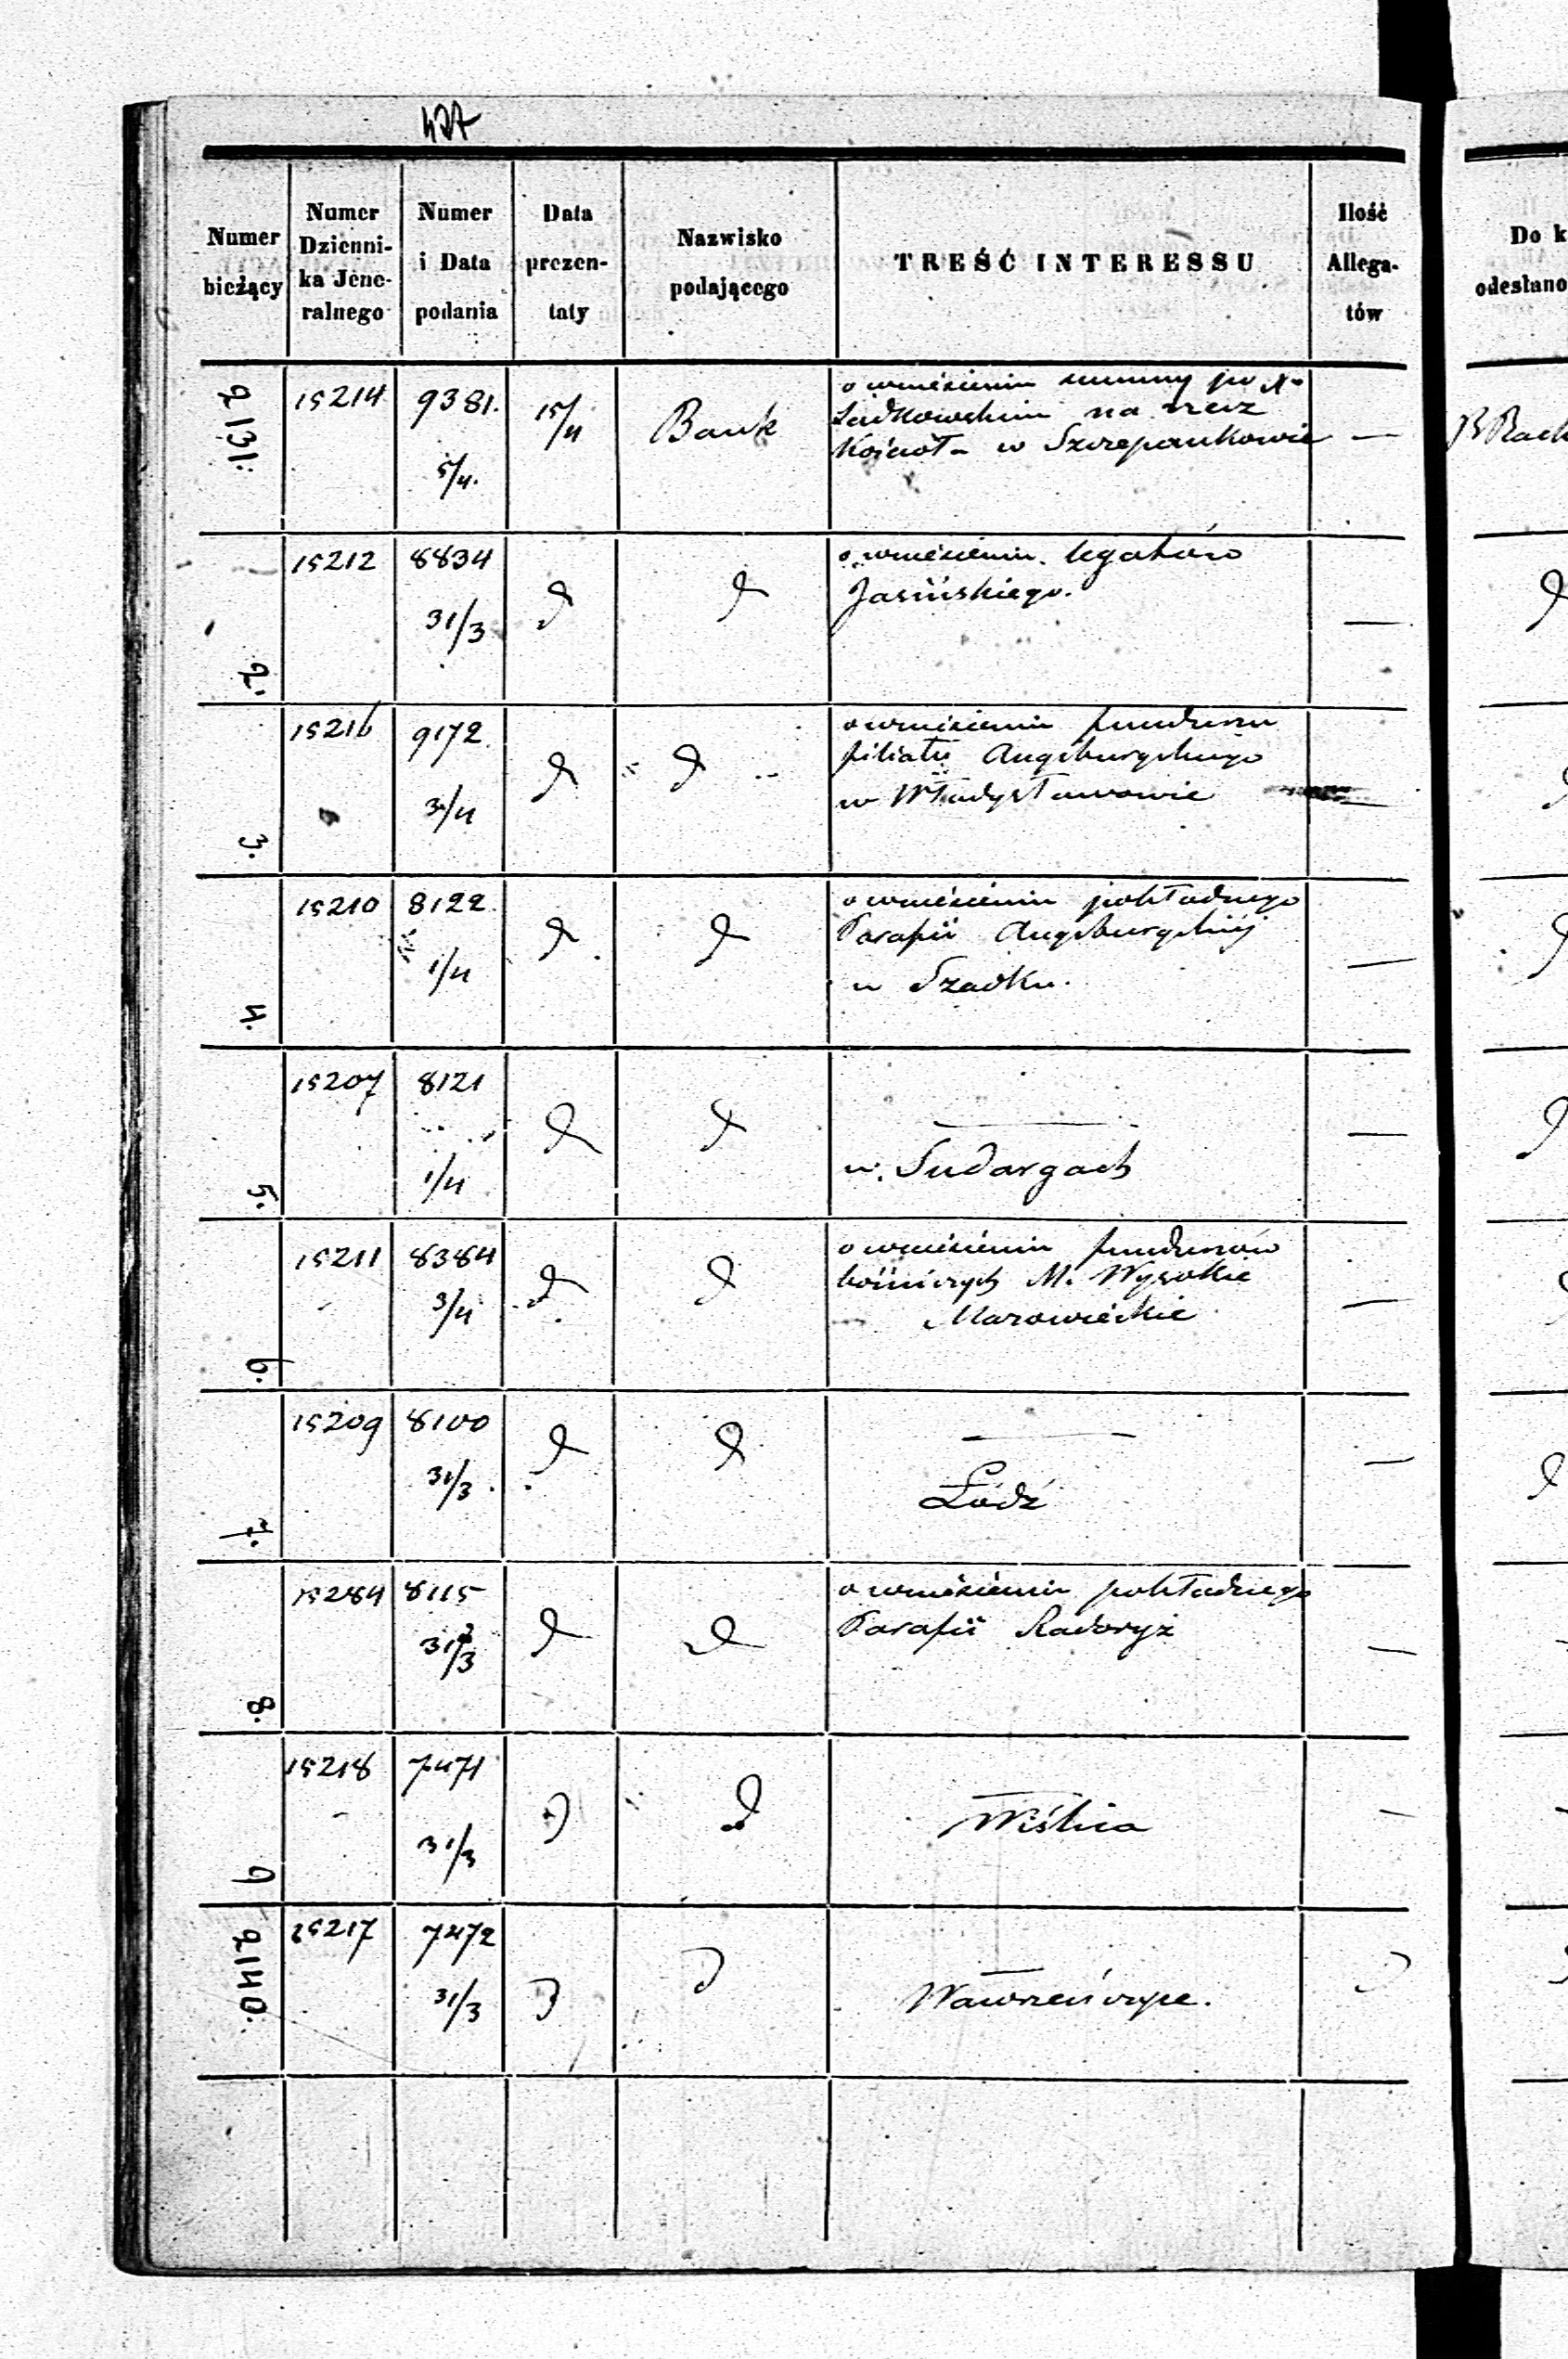 427
Numer bieżący
Numer Dzienni-ka Jene-ralnego
Numer i Data podania
Data prezen-taty
Nazwisko podającego
TREŚĆ INTERESSU
Ilość Allega-tów
Do k
odesłano
2131.
15214
9381.
5/4.
15/4
Bank
o wniesieniu summy po X.
na rzecz
Kościoł. w Szczepankowie
—
2.
15212
8834
31/3
d
d
o wniesieniu legatów
Jasińskiego.
—
d
3.
15216
9172
3/4
d
d
o wniesieniu funduszu
filiału Augsburgskiego
w Władysławowie
—
4.
15210
8122
1/4
d
d
o wniesieniu pokładnego
Parafii Augsburgskiéj
w Szadku.
—
5.
15207
8121
1/4
d
d
—
w Sudargach
—
6.
15211
8384
3/4
d
d
o wniesieniu funduszów
bóźniczych M. Wysokie
Mazowieckie
—
7.
15209
8100
31/3.
d
d
—
Łódź
—
d
8.
15284
8115
31/3
d
d
o wniesieniu pokładnego
Parafii Radoryż
—
9
15218
7471
31/3
d
d
—
Wiślica
—
2140.
15217
7472
31/3
d
d
—
Wawrzeńczyce.